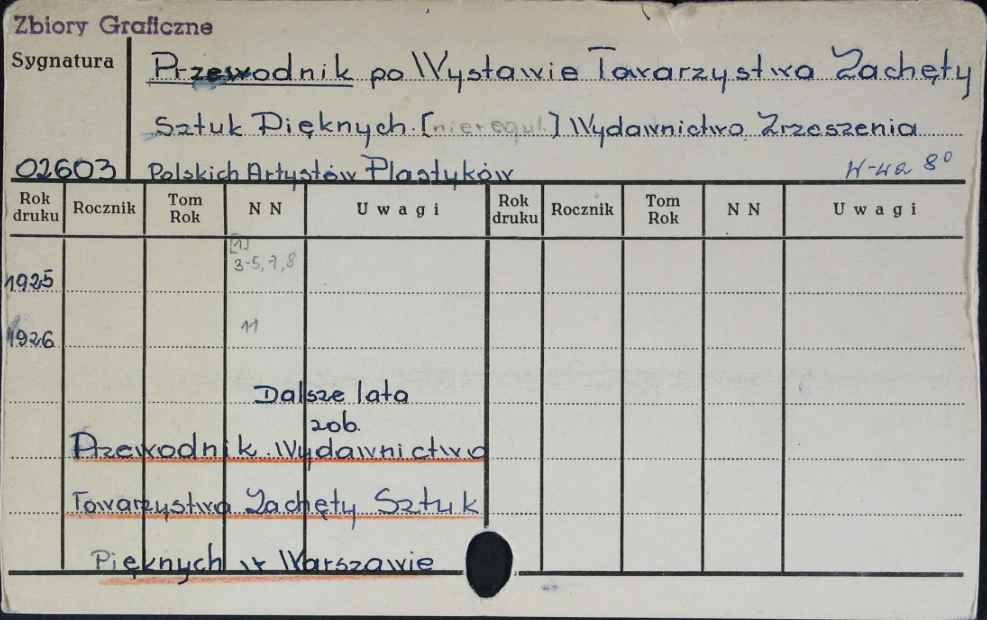 Zbiory Graficzne
Sygnatura
Przewodnik po Wystawie Towarzystwa Zachęty
Sztuk Pięknych. [nieregul.] Wydawnictwo Zrzeszenia
02603 Polskich Artystów Plastyków W-wa 8°
Rok druku Rocznik Tom Rok NN Uwagi Rok druku Rocznik Tom Rok NN Uwagi
[1]
1925 3-5, 7, 8
1926 11
Dalsze lata
zob.
Przewodnik. Wydawnictwo
Towarzystwa Zachęty Sztuk
Pięknych w Warszawie